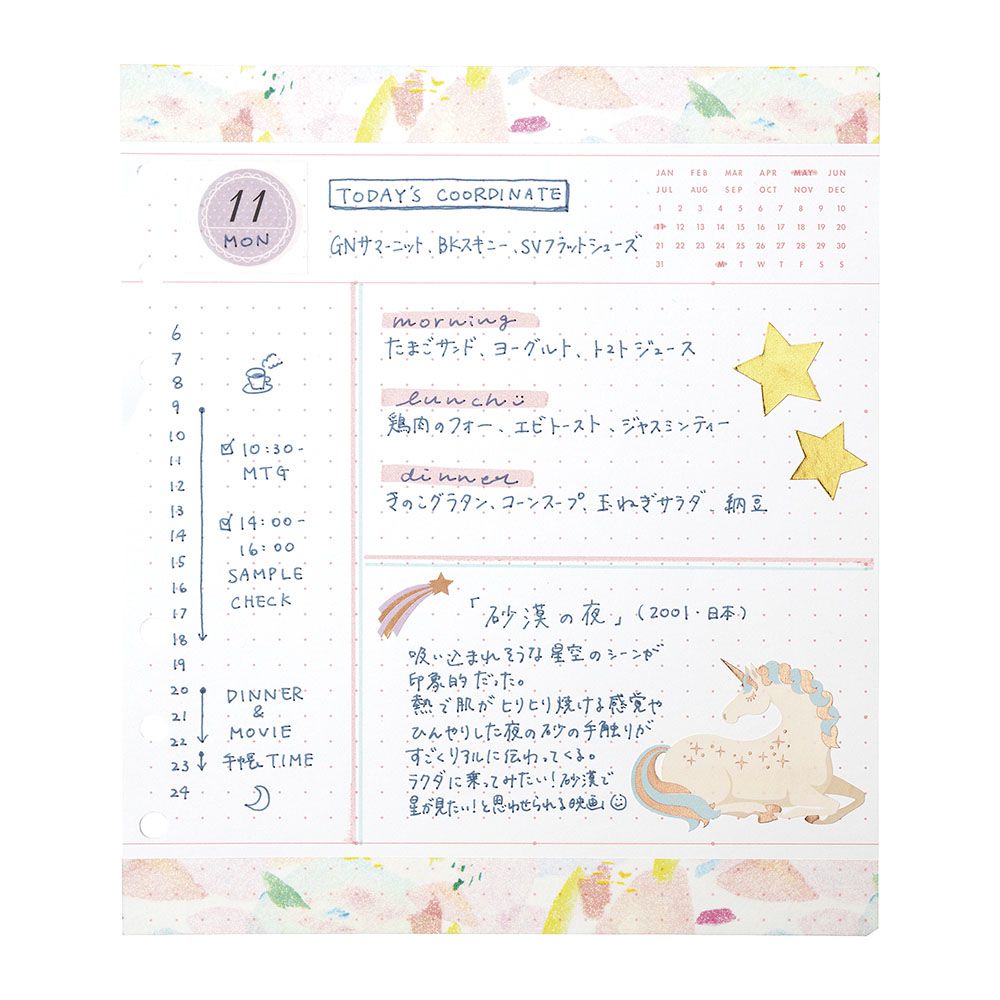 11
MON
TODAY'S COORDINATE
GNサマーニット、BKスキニー、SVフラットシューズ
JAN FEB MAR APR MAY JUN
JUL AUG SEP OCT NOV DEC
1 2 3 4 5 6 7 8 9 10
11 12 13 14 15 16 17 18 19 20
21 22 23 24 25 26 27 28 29 30
31 M T W T F S S
6
7
8
9
10
11
12
13
14
15
16
17
18
19
20
21
22
23
24
10:30-
MTG
14:00-
16:00
SAMPLE
CHECK
DINNER
&
MOVIE
手帳TIME
morning
たまごサンド、ヨーグルト、トマトジュース
lunch
鶏肉のフォー、エビトースト、ジャスミンティー
dinner
きのこグラタン、コーンスープ、玉ねぎサラダ、納豆
「砂漠の夜」(2001・日本)
吸い込まれそうな星空のシーンが
印象的だった。
熱で肌がヒリヒリ焼ける感覚や
ひんやりした夜の砂の手触りが
すごくリアルに伝わってくる。
ラクダに乗ってみたい!砂漠で
星が見たい!と思わせられる映画!